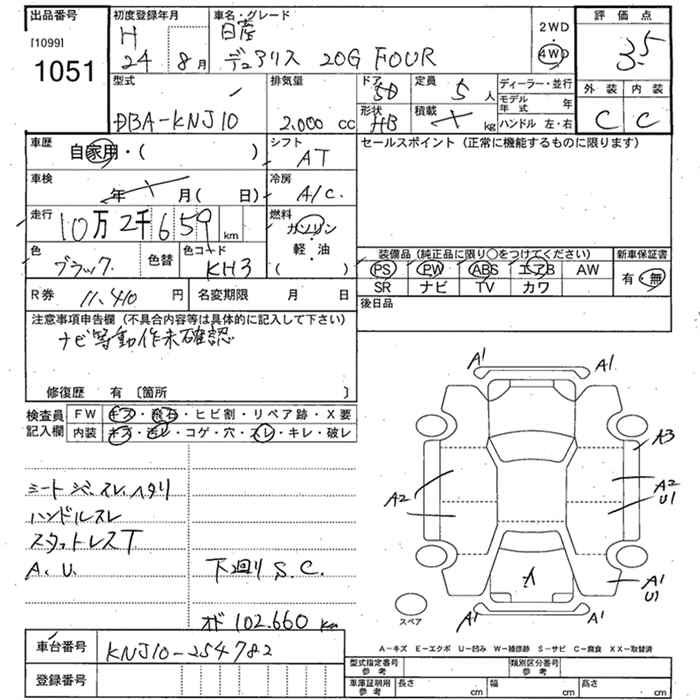 出品番号
[1099]
1051
初度登録年月
H
24 8月
車名・グレード
日産
デュアリス 20G FOUR
2WD
4WD
評価点
3.5
外装 内装
C C
型式
DBA-KNJ10
排気量
2.000 cc
ドア
5D
形状
HB
定員
5人
積載
kg
ディーラー・並行
モデル年式 年
ハンドル 左・右
車歴
自家用・( )
シフト
AT
セールスポイント(正常に機能するものに限ります)
車検
年 月( 日)
冷房
A/C
走行
10万2千659 km
燃料
ガソリン
軽・油
( )
色
ブラック
色替
色コード
KH3
装備品(純正品に限り○をつけてください)
PS PW ABS エアB AW
SR ナビ TV カワ
新車保証書
有・無
R券 11,410 円
名変期限 月 日
後日品
注意事項申告欄(不具合内容等は具体的に記入して下さい)
ナビ等動作未確認
修復歴 有 〔箇所 〕
検査員記入欄
FW キズ・飛石・ヒビ割・リペア跡・X要
内装 キズ・汚レ・コゲ・穴・スレ・キレ・破レ
シートシミ、スレ、ヘタリ
ハンドルスレ
スタットレスT
A、U
下廻り S.C.
オド 102.660 Km
A1 A1
A3
A2
A2
U1
A1
U1
A
A1 A1
スペア
A-キズ E-エクボ U-凹み W-補修跡 S-サビ C-腐食 XX-取替済
車台番号
KNJ10-254782
登録番号
型式指定番号
参考
類別区分番号
参考
車庫証明用
参考
長さ cm 幅 cm 高さ cm